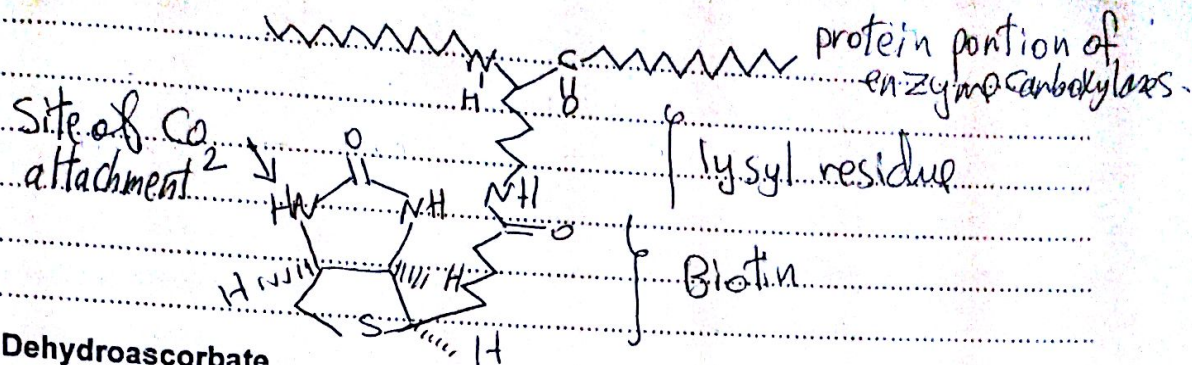 protein portion of
enzyme carboxylases.
N
C
H
O
Site of CO2
attachment
O
lysyl residue
HN
NH
NH
O
H
H
Biotin
S
H
Dehydroascorbate